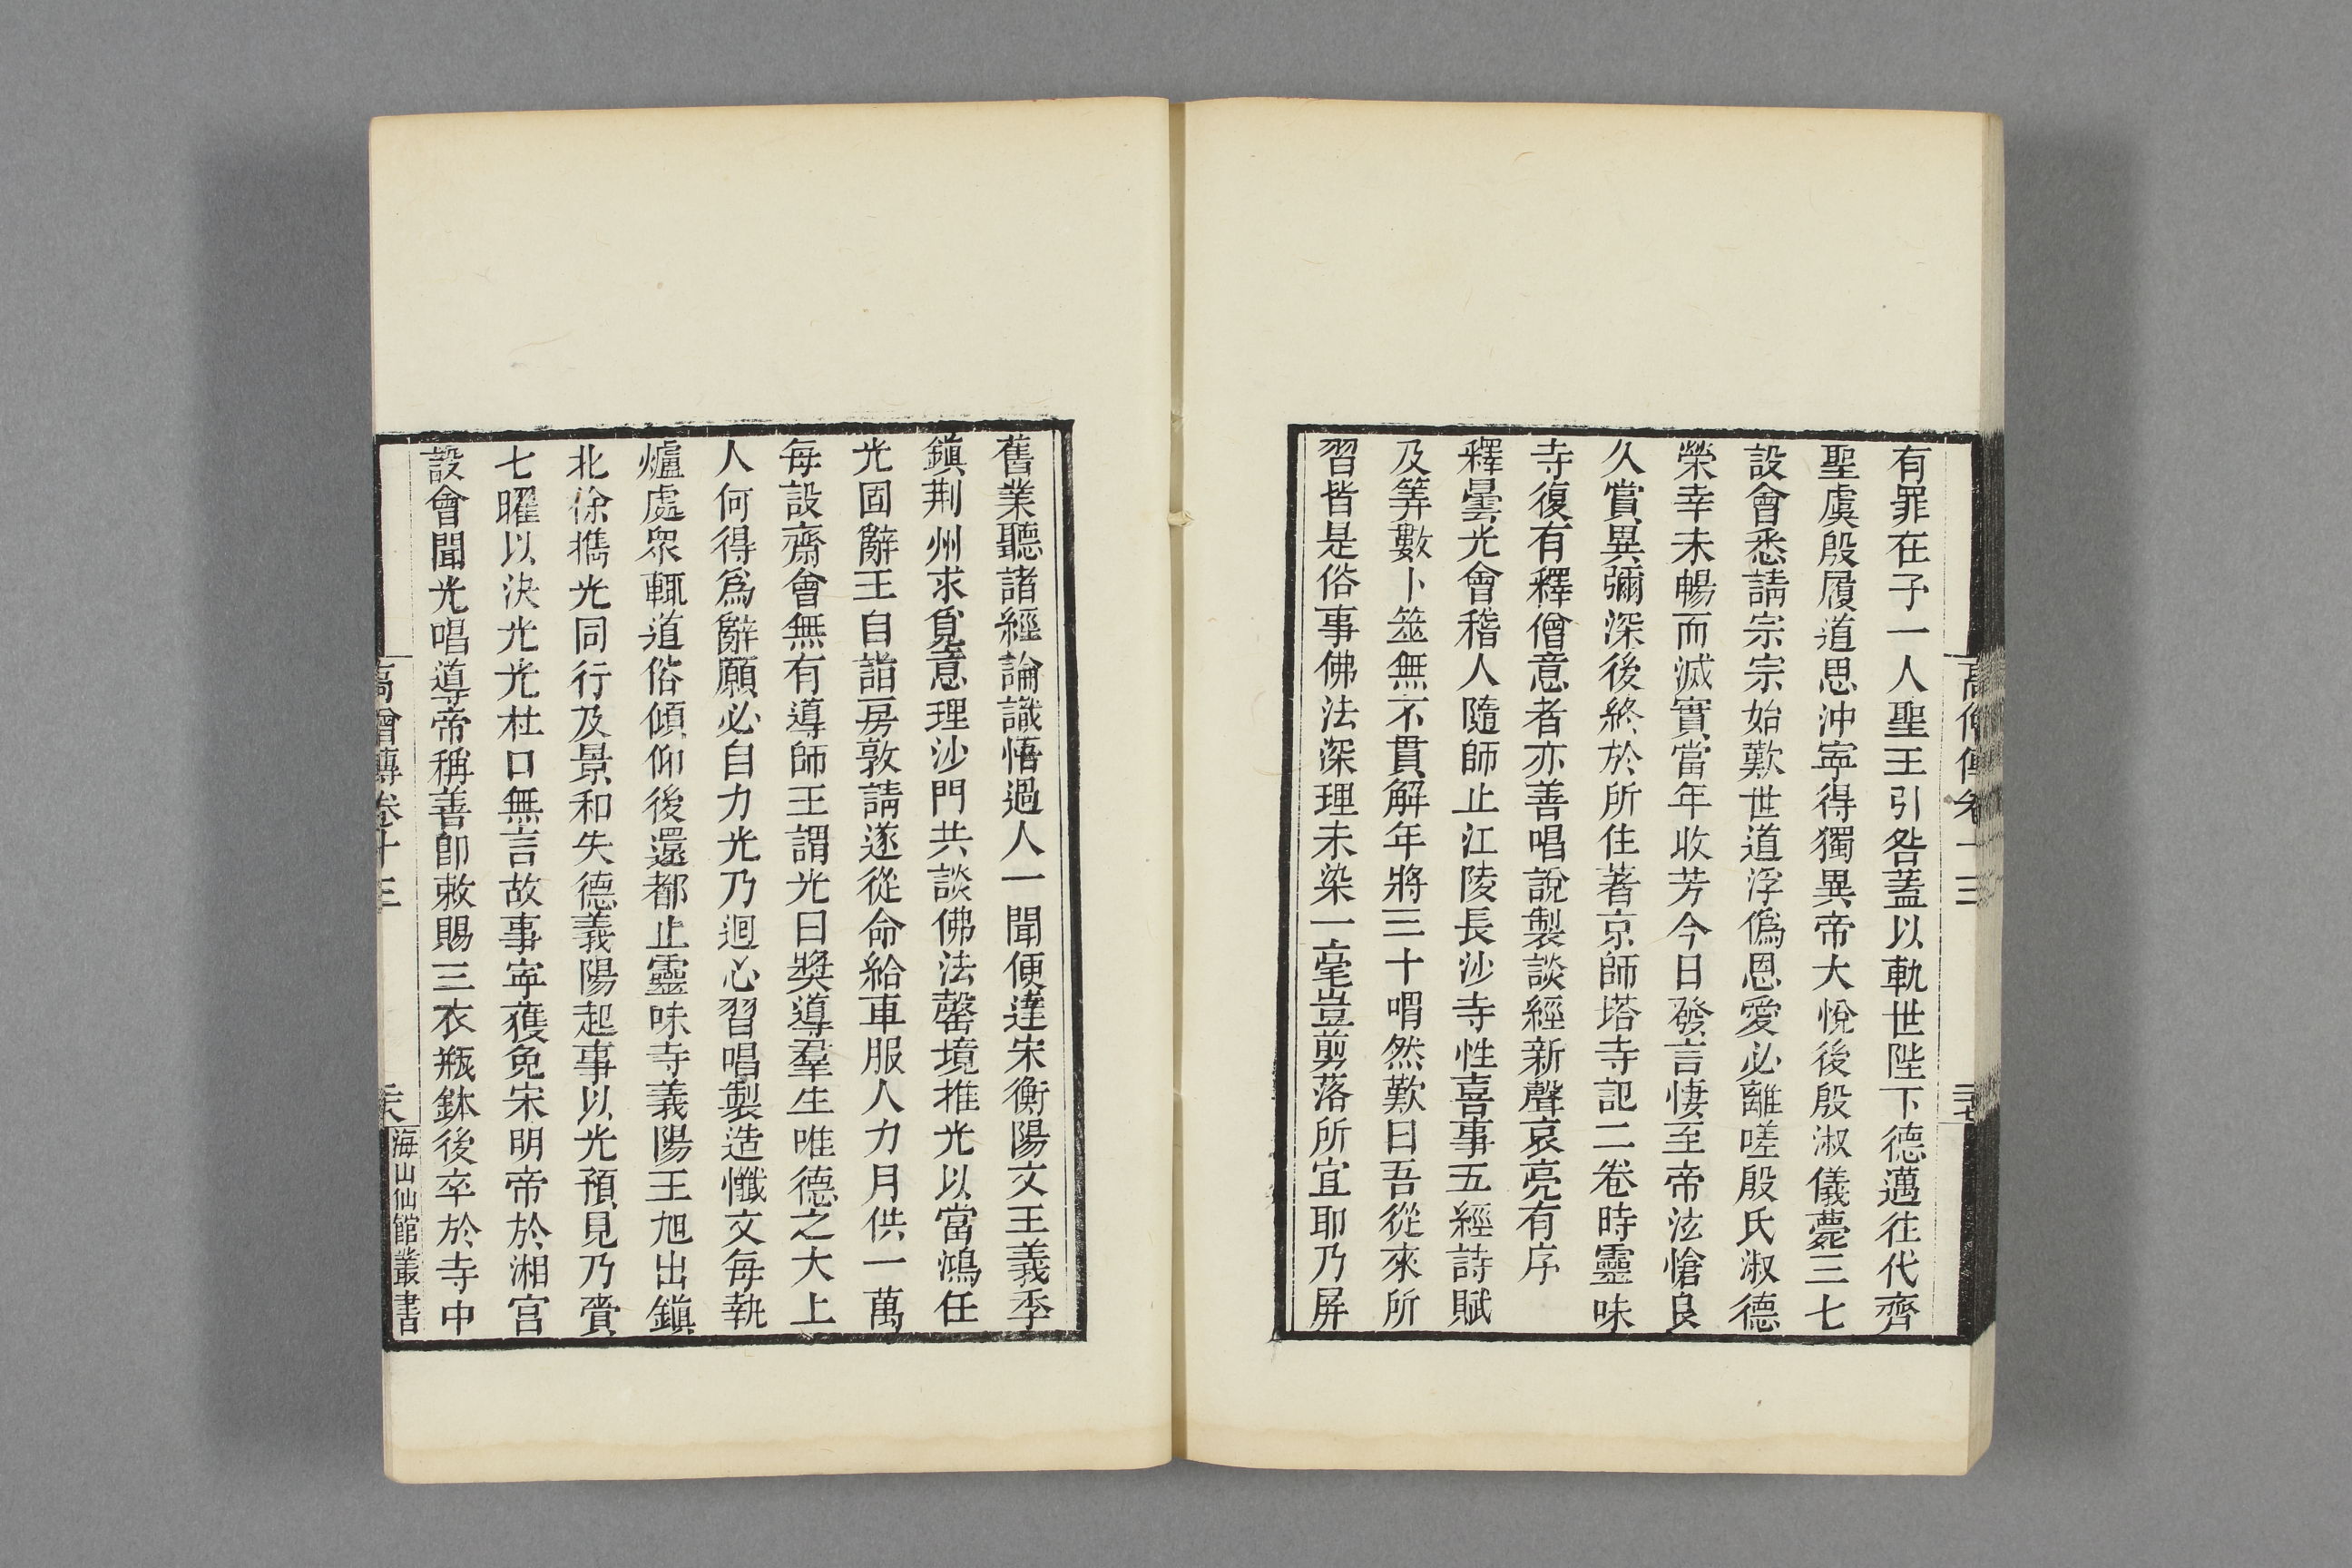 有罪在予一人聖王引咎蓋以軌世陛下德邁往代齊
聖虞殷履道思沖寜得獨異帝大悅後殷淑儀薨三七
設會悉請宗宗始歎世道浮僞恩愛必離嗟殷氏淑德
榮幸未暢而滅實當年收芳今日發言悽至帝泫愴良
久賞異彌深後終於所住著京師塔寺記二卷時靈味
寺復有釋僧意者亦善唱說製談經新聲哀亮有序
釋曇光會稽人隨師止江陵長沙寺性喜事五經詩賦
及筭數卜筮無不貫解年將三十喟然歎曰吾從來所
習皆是俗事佛法深理未染一毫豈剪落所宜耶乃屏
高僧傳卷十三
舊業聽諸經論識悟過人一聞便達宋衡陽文王義季
鎭荆州求覓意理沙門共談佛法罄境推光以當鴻任
光固辭王自詣房敦請遂從命給車服人力月供一萬
每設齋會無有導師王謂光曰獎導羣生唯德之大上
人何得爲辭願必自力光乃迴心習唱製造懺文每執
爐處衆輒道俗傾仰後還都止靈味寺義陽王旭出鎭
北徐攜光同行及景和失德義陽起事以光預見乃賫
七曜以決光光杜口無言故事寧獲免宋明帝於湘宫
設會聞光唱導帝稱善卽敕賜三衣瓶鉢後卒於寺中
高僧傳卷十三
海山仙館叢書